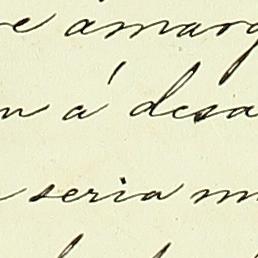 e amarg
n á desa
seria m